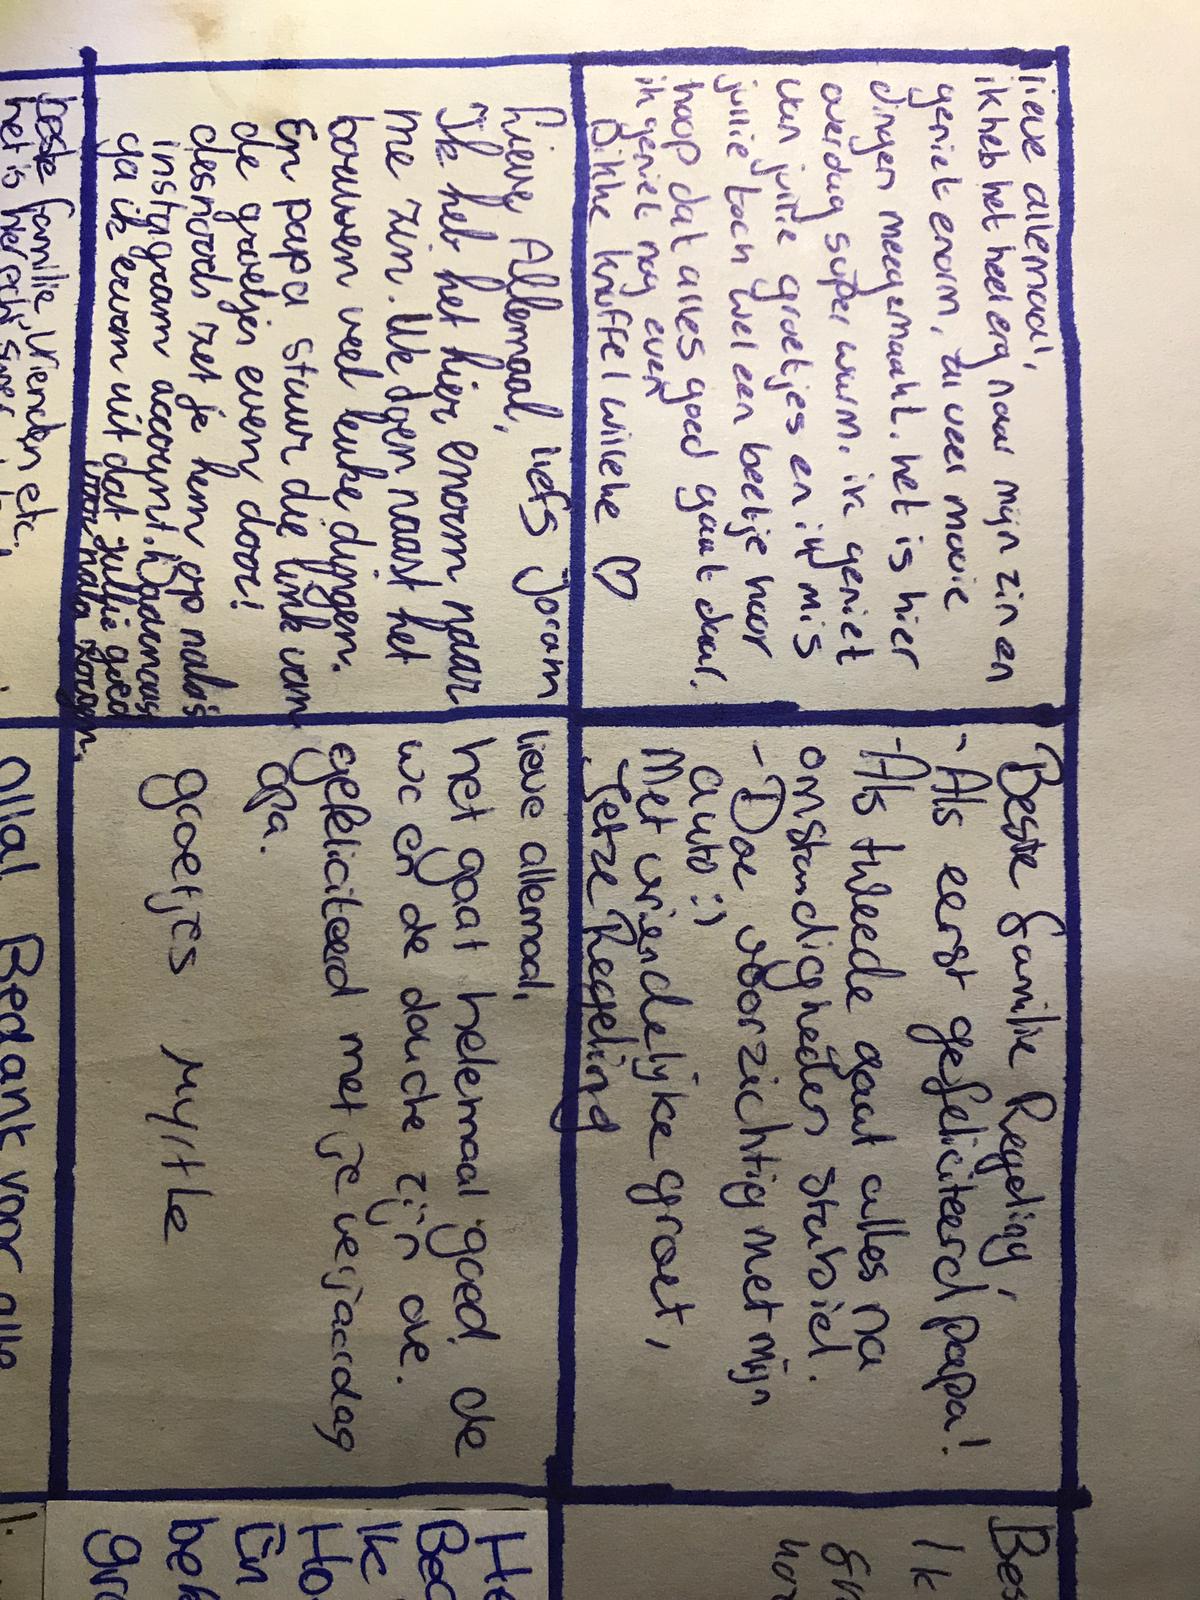 lieve allemaal,
ik heb het heel erg naar mijn zin en
geniet enorm, al veel mooie
dingen meegemaakt. het is hier
overdag super warm. ik geniet
van jullie groetjes en ik mis
jullie toch wel een beetje maar
hoop dat alles goed gaat daar.
ik geniet nog even
Dikke knuffel willeke ♡
Beste familie Regeling,
- Als eerst gefeliciteerd papa!
- Als tweede gaat alles na
omstandigheden stabiel.
- Doe voorzichtig met mijn
auto :)
Met vriendelijke groet,
Jetze Regeling
Bes
Ik
Lieve Allemaal, liefs Joram
Ik heb het hier enorm naar
me zin. We doen naast het
bouwen veel leuke dingen.
En papa stuur die link van
de groetjes even door!
desnoods zet je hem op nala's
instagram account. Daarnaast
ga ik ervan uit dat jullie goed
voor nala zorgen.
lieve allemaal,
het gaat helemaal goed. de
wc en de douche zijn oke.
gefeliciteerd met je verjaardag
opa.
groetjes Myrtle
He
Bed
Ik
Ho
En
bek
gro
beste familie, vrienden etc,
het is hier echt super
Bedankt voor alle